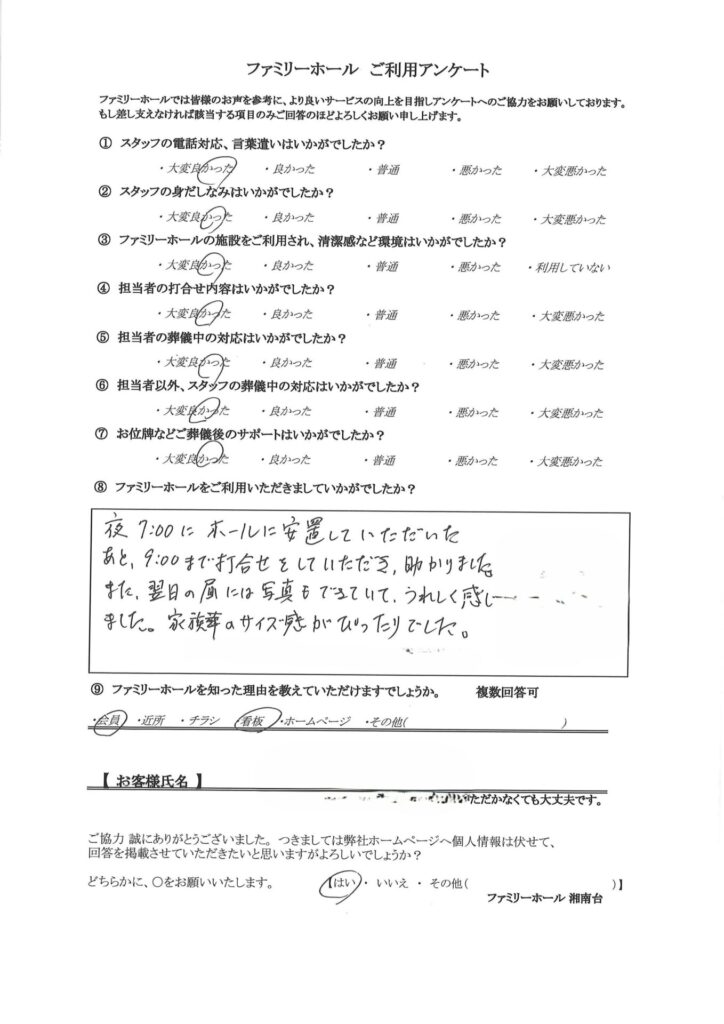 ファミリーホール ご利用アンケート
ファミリーホールでは皆様のお声を参考に、より良いサービスの向上を目指しアンケートへのご協力をお願いしております。
もし差し支えなければ該当する項目のみご回答のほどよろしくお願い申し上げます。
① スタッフの電話対応、言葉遣いはいかがでしたか？
・大変良かった ・良かった ・普通 ・悪かった ・大変悪かった
② スタッフの身だしなみはいかがでしたか？
・大変良かった ・良かった ・普通 ・悪かった ・大変悪かった
③ ファミリーホールの施設をご利用され、清潔感など環境はいかがでしたか？
・大変良かった ・良かった ・普通 ・悪かった ・利用していない
④ 担当者の打合せ内容はいかがでしたか？
・大変良かった ・良かった ・普通 ・悪かった ・大変悪かった
⑤ 担当者の葬儀中の対応はいかがでしたか？
・大変良かった ・良かった ・普通 ・悪かった ・大変悪かった
⑥ 担当者以外、スタッフの葬儀中の対応はいかがでしたか？
・大変良かった ・良かった ・普通 ・悪かった ・大変悪かった
⑦ お位牌などご葬儀後のサポートはいかがでしたか？
・大変良かった ・良かった ・普通 ・悪かった ・大変悪かった
⑧ ファミリーホールをご利用いただきましていかがでしたか？
夜 7:00に ホールに安置していただいた
あと、9:00まで打合せをしていただき、助かりました
また、翌日の昼には写真もできていて、うれしく感じ
ました。家族葬のサイズ感がぴったりでした。
⑨ ファミリーホールを知った理由を教えていただけますでしょうか。 複数回答可
・会員 ・近所 ・チラシ ・看板 ・ホームページ ・その他( )
【 お客様氏名 】
ただかなくても大丈夫です。
ご協力 誠にありがとうございました。つきましては弊社ホームページへ個人情報は伏せて、
回答を掲載させていただきたいと思いますがよろしいでしょうか？
どちらかに、○をお願いいたします。 【はい ・ いいえ ・ その他( )】
ファミリーホール 湘南台